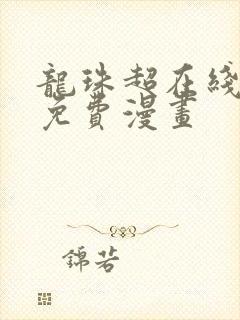 龍珠超在綫
免費漫畫
錦若